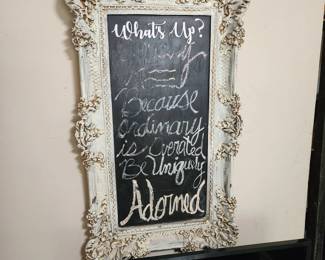 What's Up?
Because
ordinary
is Overated
Be Uniquely
Adorned